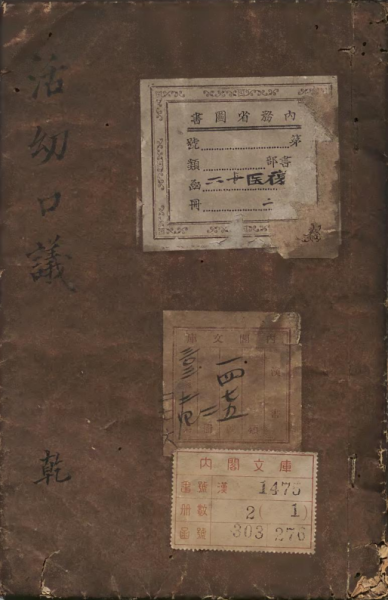 活幼口議
乾
內務省圖書
第
號
書部
類
函
二十医稿
冊
二
內閣文庫
一四七五
內閣文庫
號 漢 1475
冊數 2( 1)
號 303 276